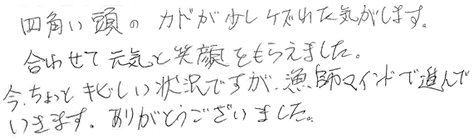 四角い頭のカドが少しケズれた気がします。
合わせて元気と笑顔をもらえました。
今、ちょっとキビしい状況ですが、漁師マインドで進んで
いきます。ありがとうございました。